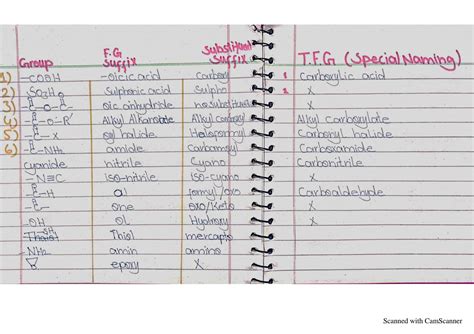 Group F.G Suffix Substituent Suffix T.F.G (Special Naming)
1) -COOH -oicicacid Carboxy 1 Carboxylic acid
2) -SO3H Sulphonic acid Sulpho 2 X
3) -C-O-C- oic anhydride no substituent X
4) -C-O-R' Alkyl Alkanoate Alkyl Carboxy Alkyl Carboxylate
5) -C-X oyl halide Carbonyl halide
6) -C-NH2 amide Carbamoyl Carboxamide
Cyanide nitrile Cyano Carbonitrile
-N≡C iso-nitrile iso-cyano X
-C-H al formyl/oxo Carboaldehyde
-C- one oxo/Keto X
-OH ol Hydroxy X
-SH Thiol mercapto
-NH2 amin amino
epoxy X
Scanned with CamScanner